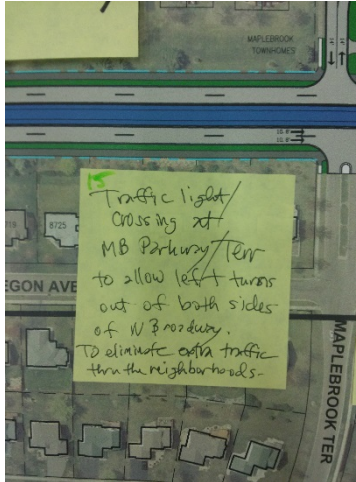 MAPLEBROOK
TOWNHOMES
15
Traffic light/
Crossing at
MB Parkway/Terr
to allow left turns
out of both sides
of W Broadway.
To eliminate extra traffic
thru the neighborhoods-
8725
EGON AVE
MAPLEBROOK TER